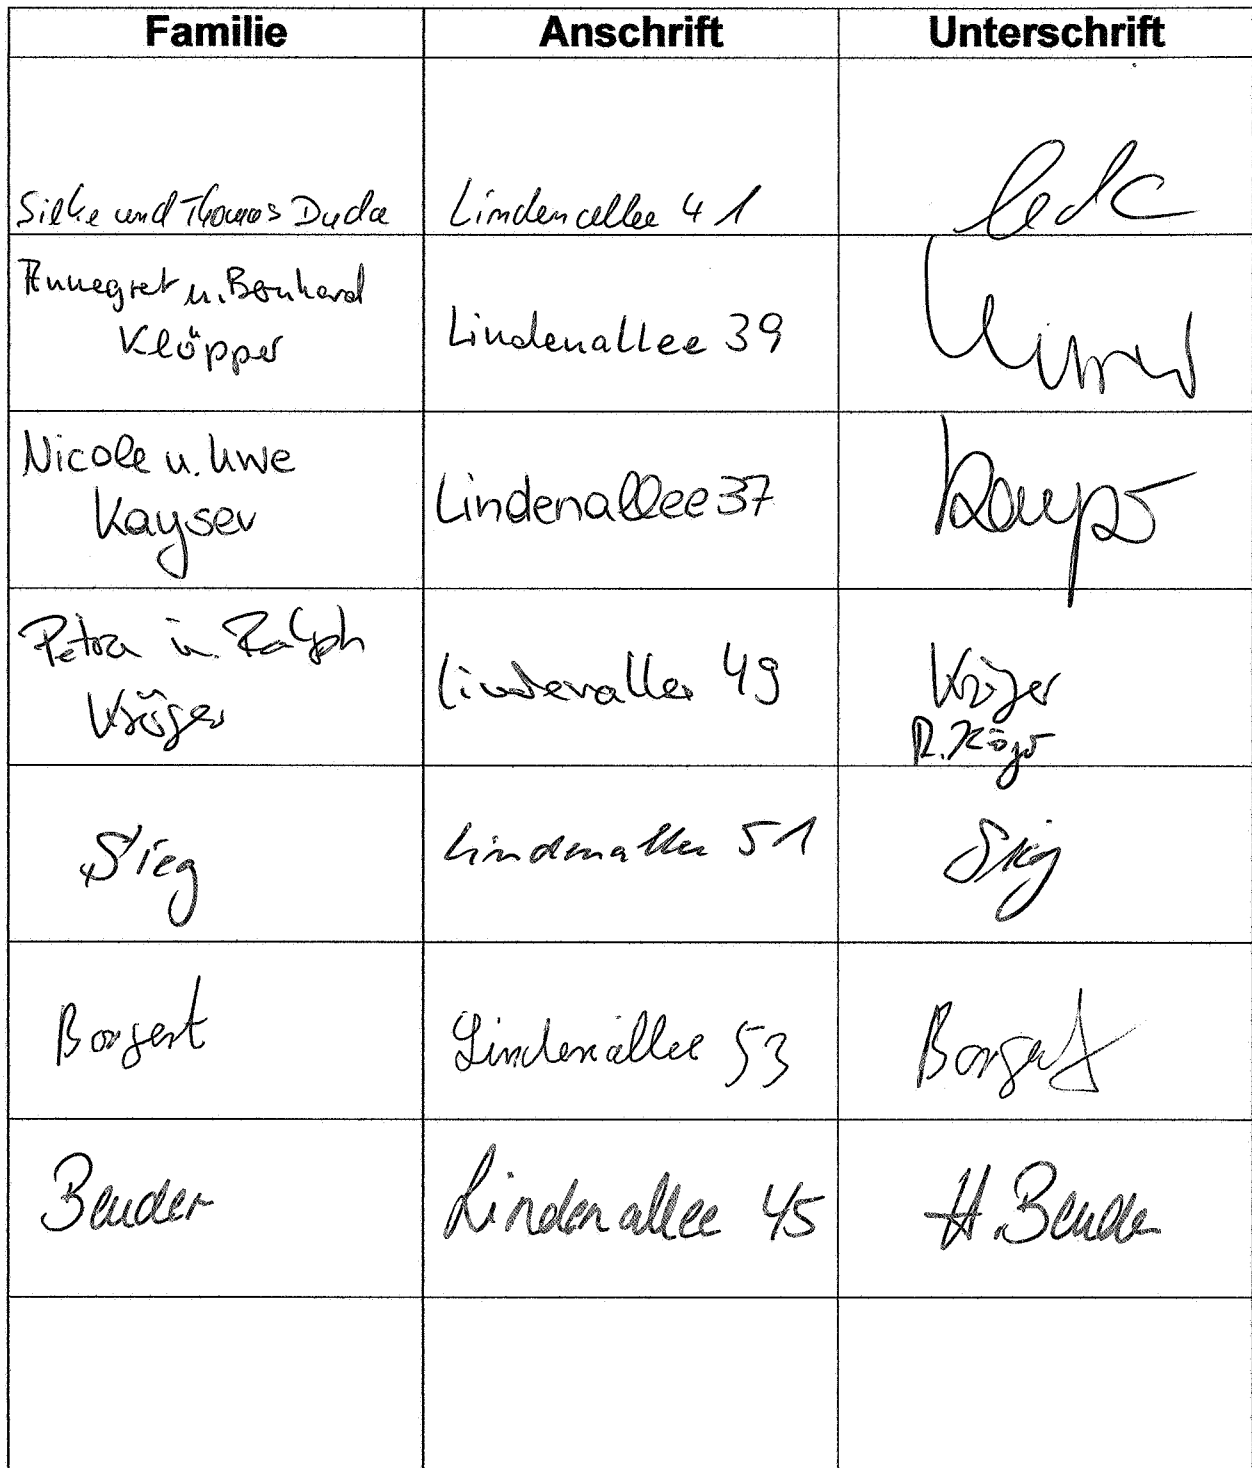 Familie Anschrift Unterschrift
Silke und Thomas Duda Lindenallee 41
Annegret u. Bernhard
Klöpper Lindenallee 39
Nicole u. Uwe
Kayser Lindenallee 37
Petra u. Ralph
Kröger Lindenallee 49 Kröger
R. Kröger
Stieg Lindenallee 51 Stieg
Borgert Lindenallee 53 Borgert
Bender Lindenallee 45 H. Bender